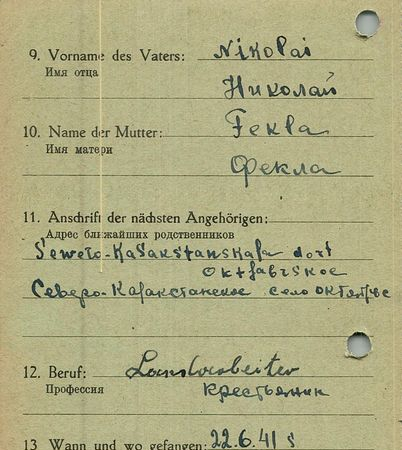 9. Vorname des Vaters: Nikolai
Имя отца
Николай
10. Name der Mutter: Fekla
Имя матери
Фекла
11. Anschrift der nächsten Angehörigen:
Адрес ближайших родственников
Sewero-Kasakstanskaja dorf
Oktjabrskoe
Северо-Казакстанское село октябрьс
12. Beruf: Landarbeiter
Профессия
крестьянин
13 Wann und wo gefangen: 22.6.41